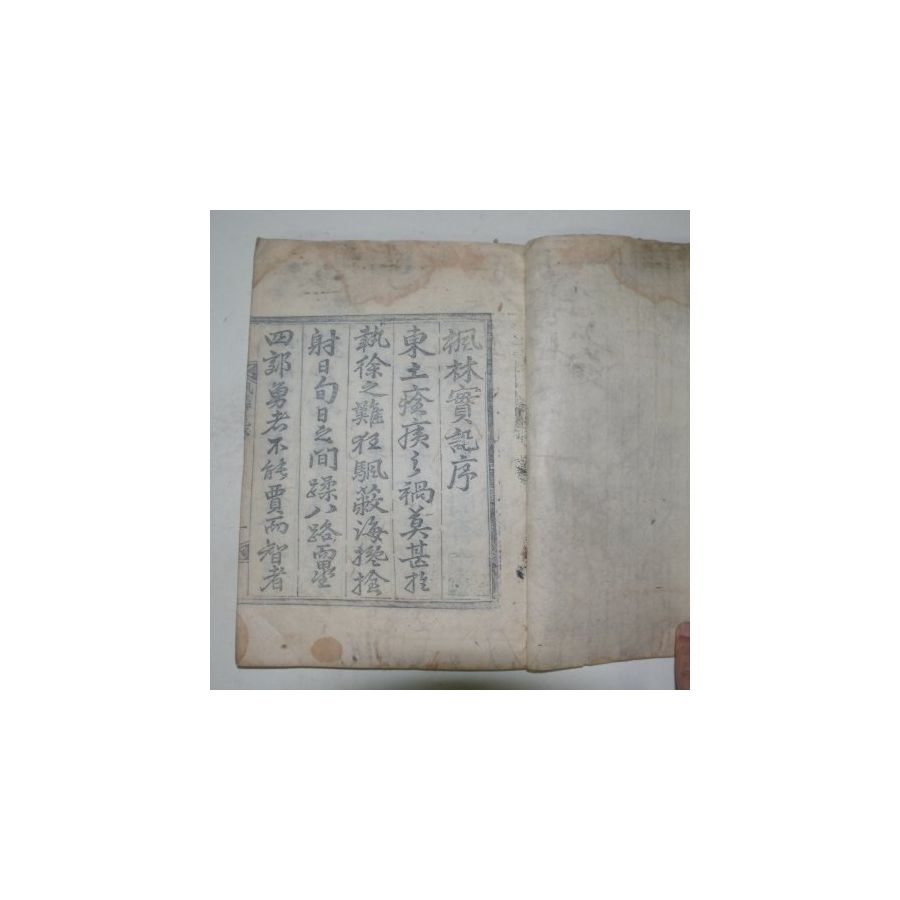 楓林實記序
東土瘡痍之禍莫甚於
執徐之難狂颿蔽海攙搶
射日旬日之間蹂八路壘
四郊勇者不能賈而智者